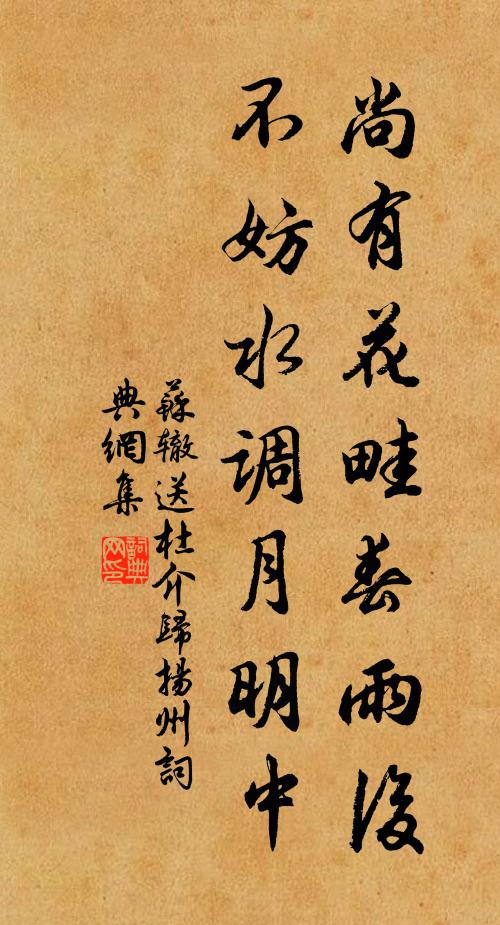 尚有花畦春雨後
不妨水调月明中
蘇辙送杜介歸揚州詞
典網集
詞典網印